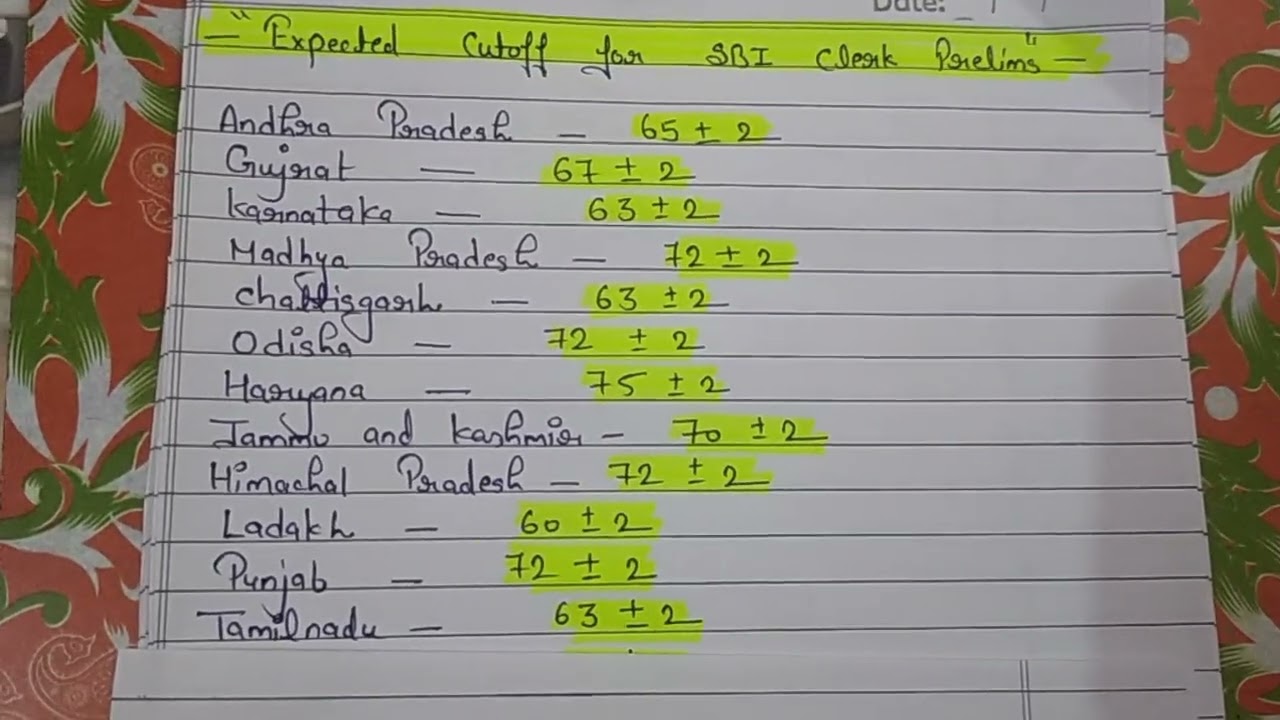 Date: / /
— "Expected Cutoff for SBI Clerk Prelims" —
Andhra Pradesh — 65 ± 2
Gujrat — 67 ± 2
Karnataka — 63 ± 2
Madhya Pradesh — 72 ± 2
Chattisgarh — 63 ± 2
Odisha — 72 ± 2
Haryana — 75 ± 2
Jammu and Kashmir — 70 ± 2
Himachal Pradesh — 72 ± 2
Ladakh — 60 ± 2
Punjab — 72 ± 2
Tamilnadu — 63 ± 2